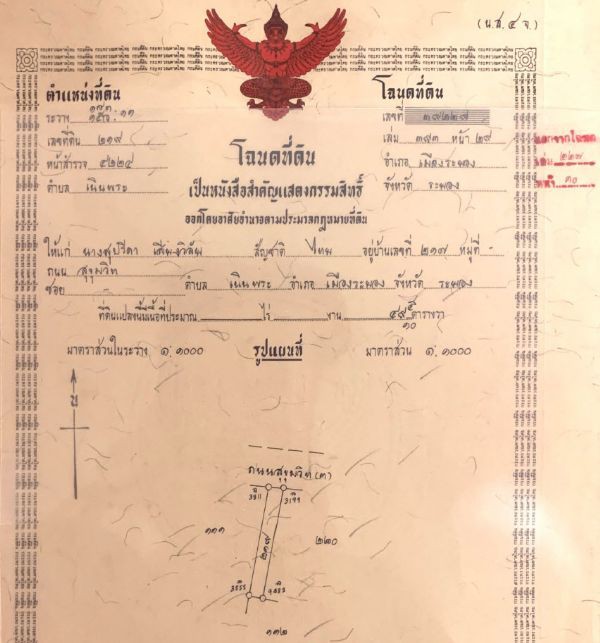 (น.ส. ๔ จ.)
ตำแหน่งที่ดิน
ระวาง
เลขที่ดิน ๒๑๙
หน้าสำรวจ ๕๒๒๔
ตำบล เนินพระ
โฉนดที่ดิน
เลขที่ ๓๙๒๒๙
เล่ม ๓๙๓ หน้า ๒๙
อำเภอ เมืองระยอง
จังหวัด ระยอง
เล่ม ๒๒๗
หน้า ๓๐
โฉนดที่ดิน
เป็นหนังสือสำคัญแสดงกรรมสิทธิ์
ออกโดยอาศัยอำนาจตามประมวลกฎหมายที่ดิน
ให้แก่ สัญชาติ ไทย อยู่บ้านเลขที่ ๒๑๗ หมู่ที่ -
ถนน สุขุมวิท
ซอย - ตำบล เนินพระ อำเภอ เมืองระยอง จังหวัด ระยอง
ที่ดินแปลงนี้มีเนื้อที่ประมาณ - ไร่ - งาน ๔๙ ๕/๑๐ ตารางวา
มาตราส่วนในระวาง ๑:๑๐๐๐ รูปแผนที่ มาตราส่วน ๑:๑๐๐๐
น
ถนนสุขุมวิท (๓)
๑๑๑ ๒๑๙ ๒๒๐
๑๓๒